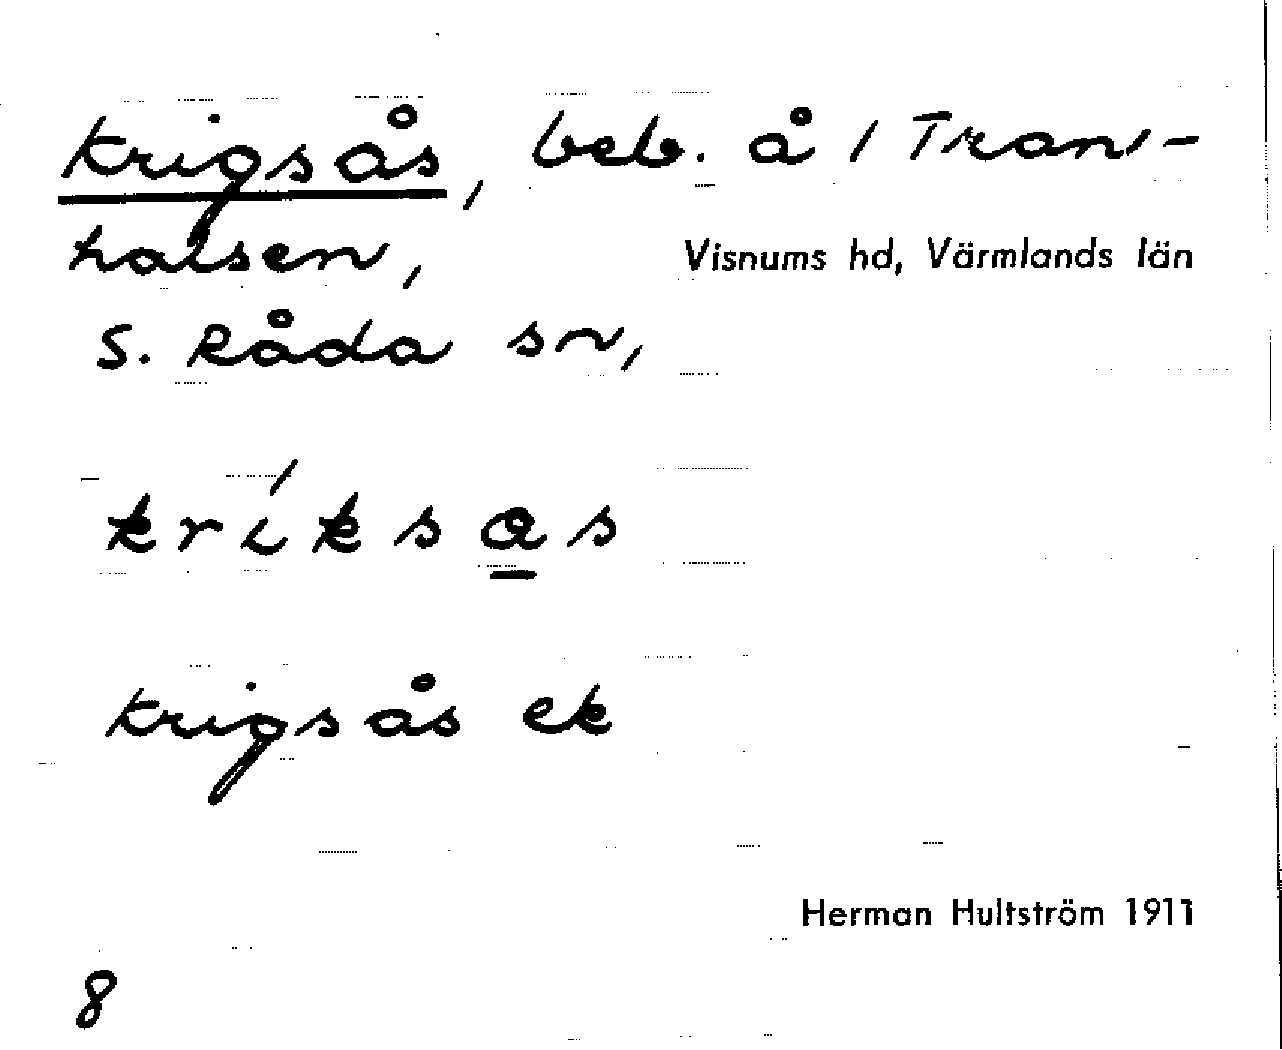 Krigsås, beb. å 1 Tran-
halsen, Visnums hd, Värmlands län
S. Råda sn,
kríksa̲s
Krigsås ek
Herman Hultström 1911
8